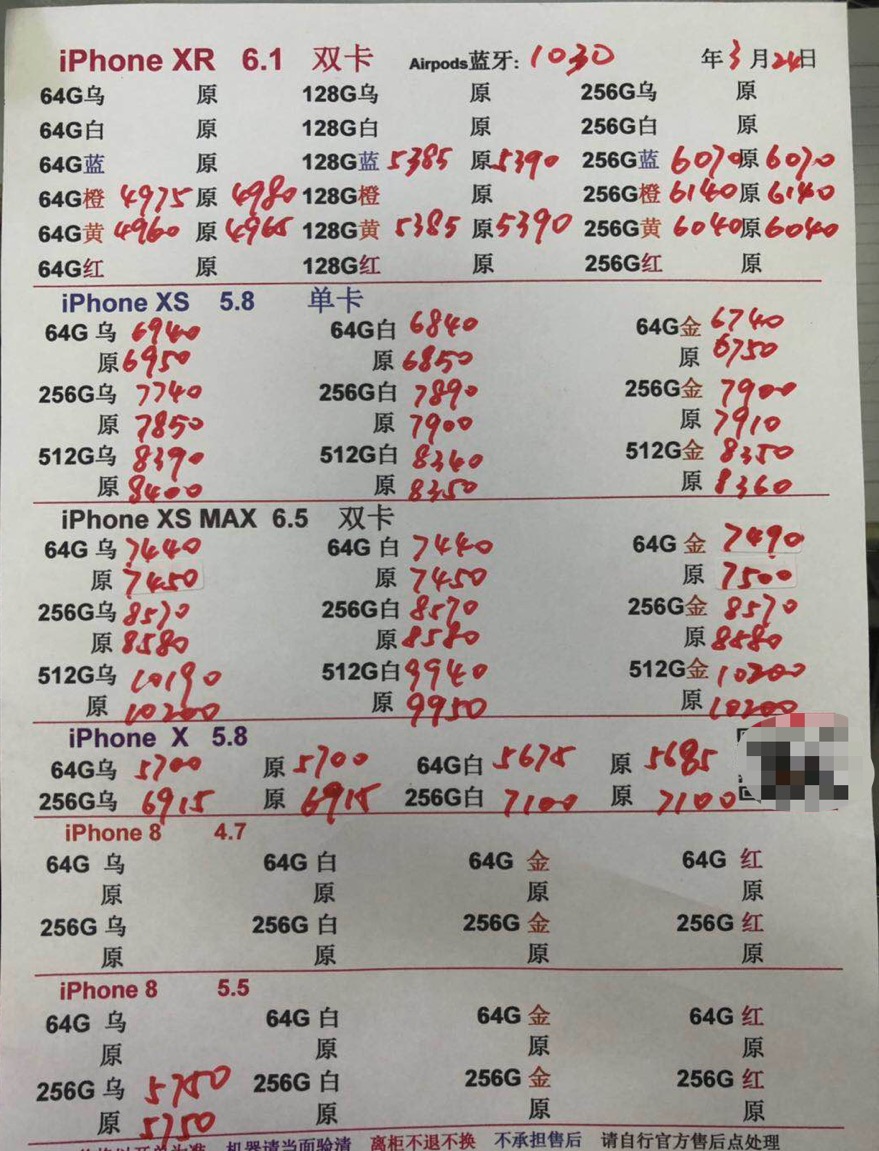 iPhone XR 6.1 双卡 Airpods蓝牙: 1030 年3月24日
64G乌 原 128G乌 原 256G乌 原
64G白 原 128G白 原 256G白 原
64G蓝 原 128G蓝 5385 原5390 256G蓝 6070原6070
64G橙 4975 原 4980 128G橙 原 256G橙 6140原6140
64G黄 4960 原 4965 128G黄 5385 原5390 256G黄 6040原6040
64G红 原 128G红 原 256G红 原
iPhone XS 5.8 单卡
64G 乌 6940 64G白 6840 64G金 6740
原6950 原 6850 原 6750
256G乌 7740 256G白 7890 256G金 7900
原 7850 原 7900 原 7910
512G乌 8390 512G白 8340 512G金 8350
原 8400 原 8350 原 8360
iPhone XS MAX 6.5 双卡
64G 乌 7440 64G 白 7440 64G 金 7490
原 7450 原 7450 原 7500
256G乌 8570 256G白 8570 256G金 8570
原 8580 原 8580 原 8580
512G乌 10190 512G白 9940 512G金 10200
原 10200 原 9950 原 10200
iPhone X 5.8
64G乌 5700 原 5700 64G白 5675 原 5685
256G乌 6915 原 6915 256G白 7100 原 7100
iPhone 8 4.7
64G 乌 64G 白 64G 金 64G 红
原 原 原 原
256G 乌 256G 白 256G 金 256G 红
原 原 原 原
iPhone 8 5.5
64G 乌 64G 白 64G 金 64G 红
原 原 原 原
256G 乌 5750 256G 白 256G 金 256G 红
原 5750 原 原 原
机器请当面验清 离柜不退不换 不承担售后 请自行官方售后点处理